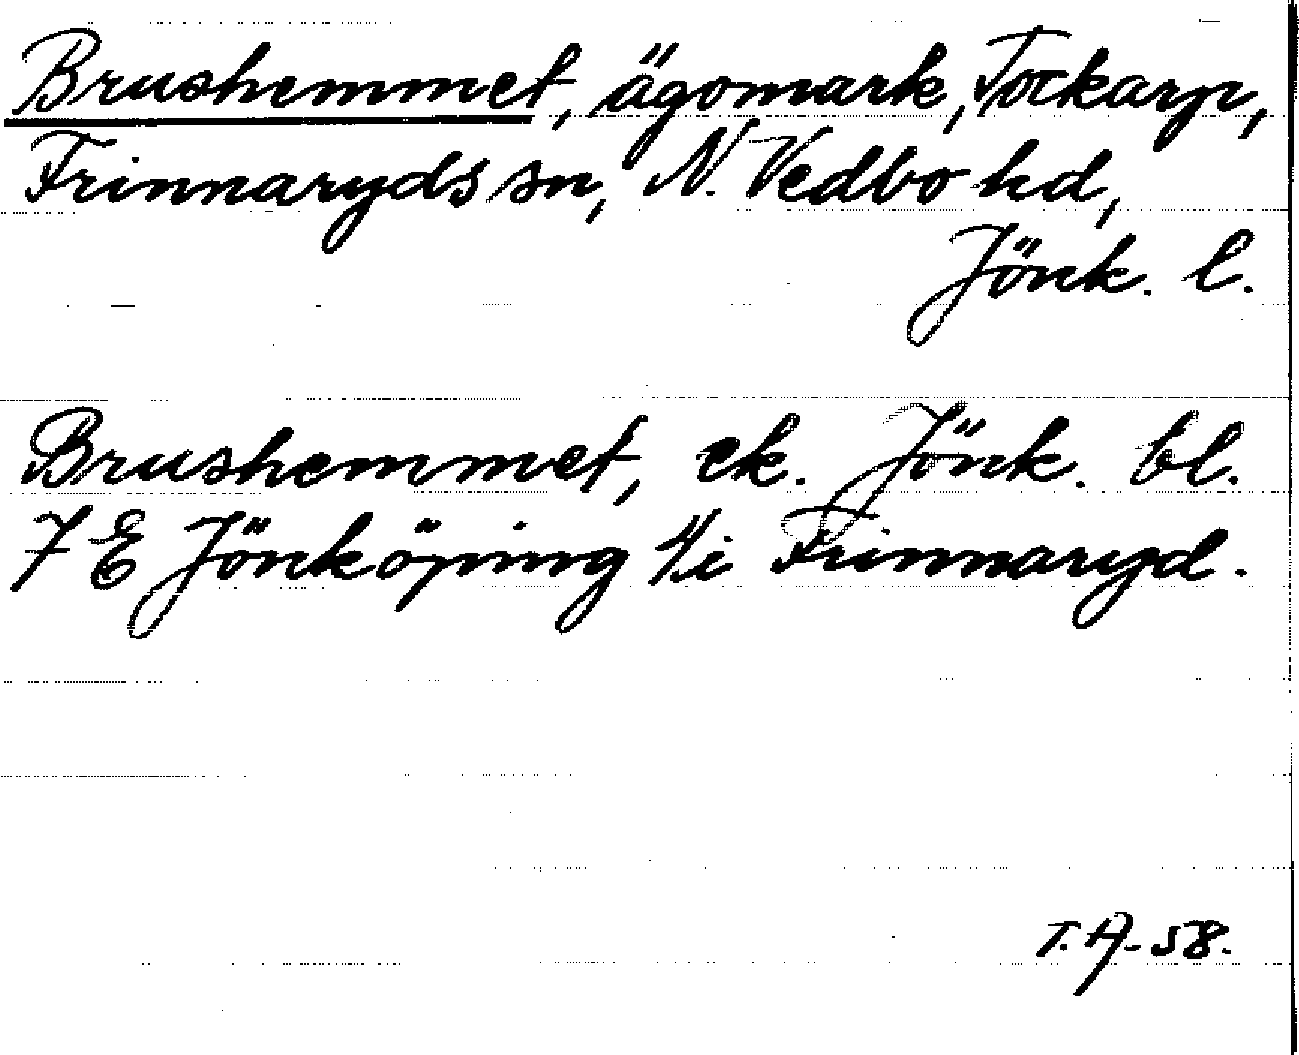 Brushemmet, ägomark, Tockarp,
Frinnaryds sn, N. Vedbo hd,
Jönk. l.
Brushemmet, ek. Jönk. bl.
7 E Jönköping 4/i Frinnaryd.
T. A-58.